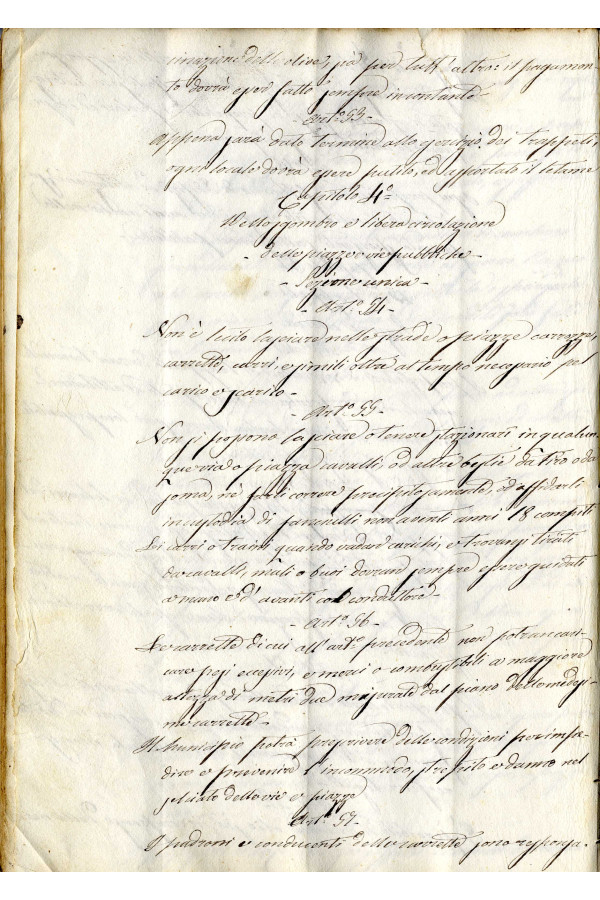 inazione delle olive, già per tutt'altro: il pagamen-
to dovrà esser fatto sempre in contante-
- Art.° 53-
Appena sarà dato termine allo esercizio dei trappeti,
ogni locale dovrà essere pulito, ed asportato il letame
Capitolo 4.°
Dello sgombro e libera circolazione
- delle piazze e vie pubbliche -
- Sezione unica -
- Art.° 54-
Non è lecito lasciare nelle strade o piazze carrozze,
carrette, carri, e simili oltre al tempo necessario pel
carico e scarico -
- Art.° 55-
Non si possono lasciare o tenere stazionari in qualun-
que via o piazza cavalli, od altre bestie da tiro o da
soma, nè farli correre precipitosamente, od affidarli
in custodia di fanciulli non aventi anni 18 compiti
I carri o traini quando vadano carichi, e trovansi tirati
da cavalli, muli o buoi dovranno sempre essere guidati
a mano e d'avanti col conduttore -
- Art.° 56-
Le carrette di cui all'art.° precedente non potran cari-
care pesi eccessivi, e merci o combustibili a maggiore
altezza di metri due misurate dal piano delle medesi-
me carrette -
Il Municipio potrà prescrivere delle condizioni per impe-
dire e prevenire incommodo, strepito e danno nel
selciato delle vie e piazze
Art.° 57-
I padroni e conducenti delle carrette sono responsa-